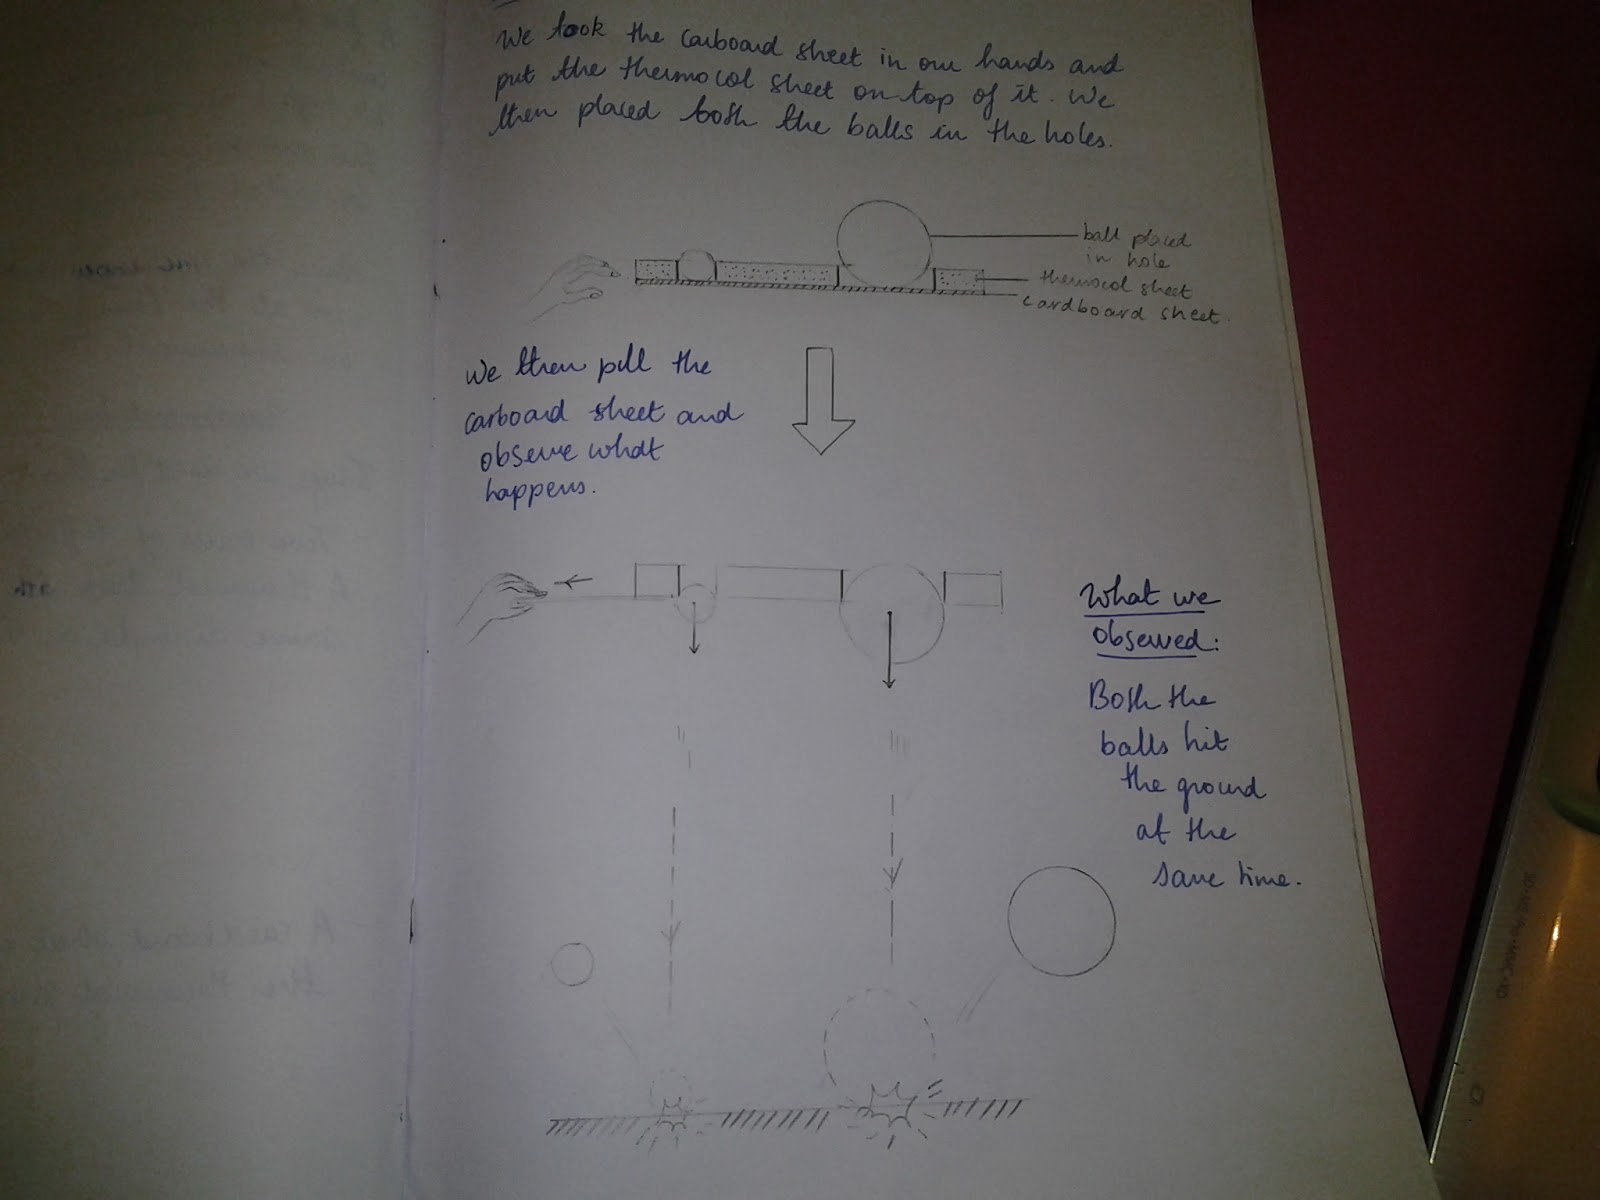 We took the carboard sheet in our hands and
put the thermocol sheet on top of it. We
then placed both the balls in the holes.
ball placed
in hole
thermocol sheet
cardboard sheet.
We then pull the
carboard sheet and
observe what
happens.
What we
observed:
Both the
balls hit
the ground
at the
same time.